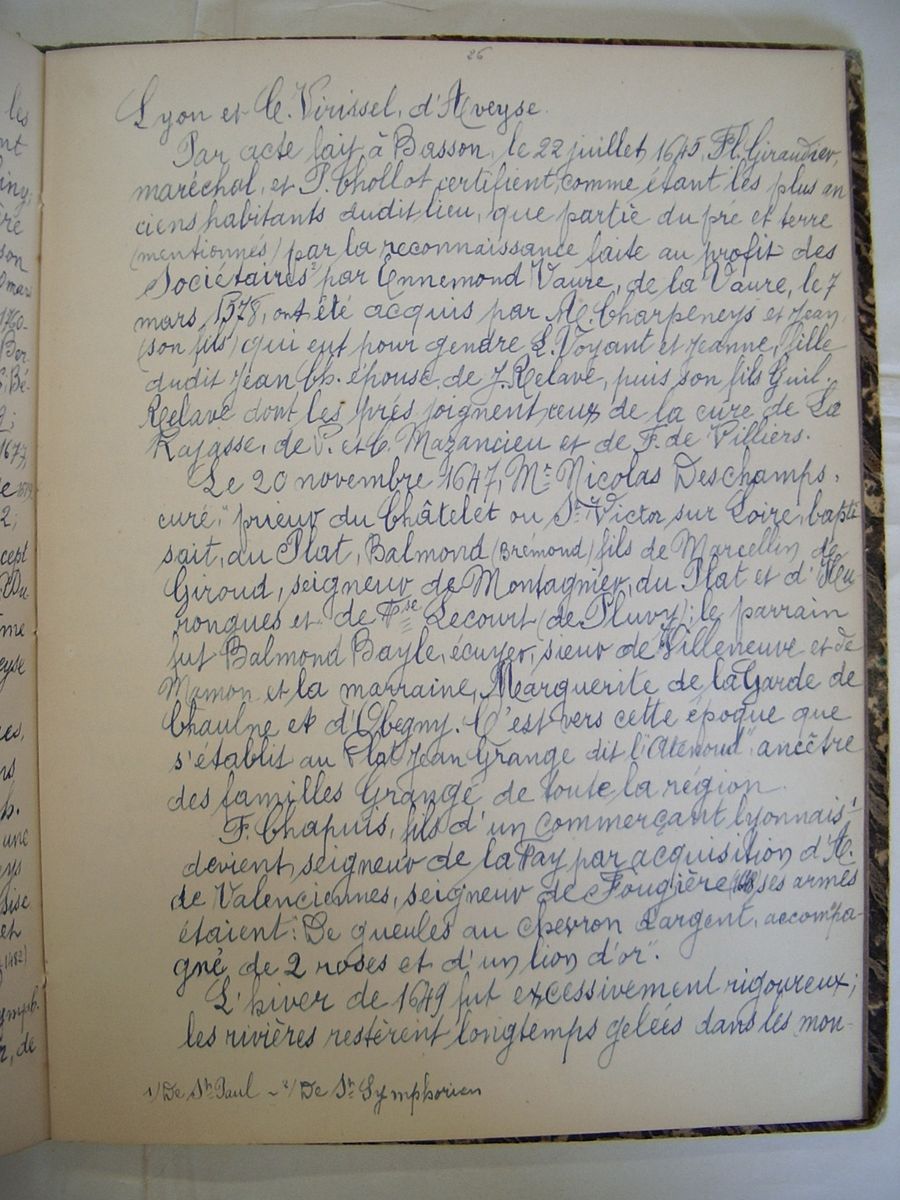 26
Lyon et C. Virissel, d'Aveyse.
Par acte fait à Basson, le 22 juillet 1645, Fl. Giraudier,
maréchal, et P. Chollot certifient, comme étant les plus an
ciens habitants dudit lieu, que partie du pré et terre
(mentionnés) par la reconnaissance faite au profit des
Sociétaires² par Ennemond Vaure, de la Vaure, le 7
mars 1578, ont été acquis par M. Charpeneys et Jean,
(son fils) qui eut pour gendre L. Voyant et Jeanne, fille
dudit Jean Ch. épouse de J. Relave, puis son fils Guil.
Relave dont les prés joignent ceux de la cure de La
Rajasse, de P. et C. Mazancieu et de F. de Villiers.
Le 20 novembre 1647, Mre Nicolas Deschamps,
curé, "prieur du Châtelet ou St Victor sur Loire, bapti
sait, au Plat, Balmond (Brémond) fils de Marcellin de
Giroud, seigneur de Montagnier, du Plat et d'Heu
rongues et de Fse Lecourt (de Pluvy); le parrain
fut Balmond Bayle, écuyer, sieur de Villeneuve et de
Momon et la marraine, Marguerite de la Garde de
Chaulne et d'Obegny. C'est vers cette époque que
s'établit au Plat Jean Grange dit l' ancêtre
des familles Grange de toute la région.
F. Chapuis, fils d'un commerçant lyonnais
devient seigneur de la Fay par acquisition d'A.
de Valenciennes, seigneur de Fougière ses armes
étaient: De gueules au chevron d'argent, accompa-
gné de 2 roses et d'un lion d'or".
L'hiver de 1649 fut excessivement rigoureux;
les rivières restèrent longtemps gelées dans les mon-
1) De St Paul - 2) De St Symphorien